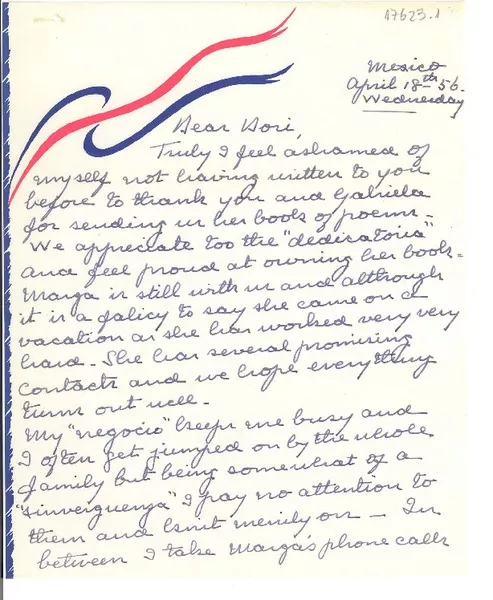 17623.1
Mexico
April 18th 56.
Wednesday
Dear Dori,
Truly I feel ashamed of
myself not having written to you
before to thank you and Gabriela
for sending us her books of poems -
We appreciate too the "dedicatoria"
and feel proud at owning her books -
Marga is still with us and although
it is a falicy to say she came on a
vacation as she has worked very very
hard - She has several promising
contacts and we hope everything
turns out well -
My "negocio" keeps me busy and
I often get jumped on by the whole
family but being somewhat of a
"sinverguenza" I pay no attention to
them and knit merrily on - In
between I take Marga's phone calls